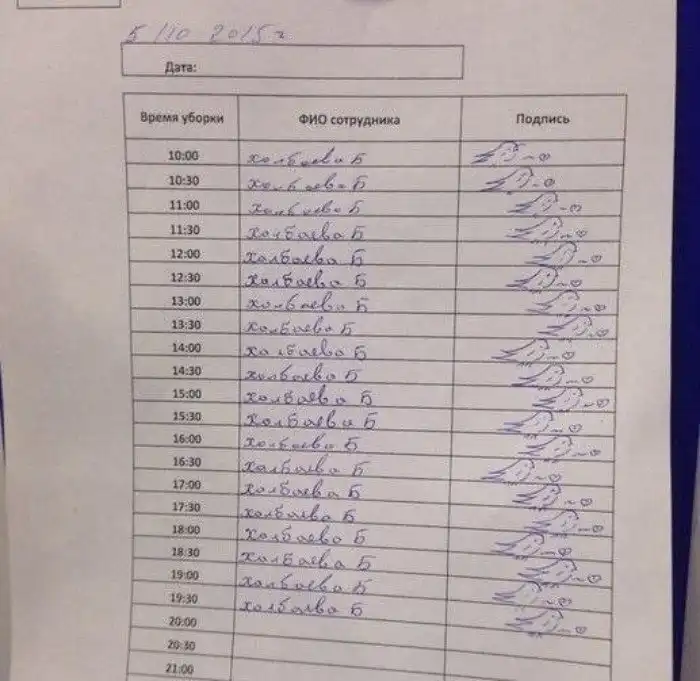 5/10 2015 г
Дата:
Время уборки ФИО сотрудника Подпись
10:00 Холбаева Б
10:30 Холбаева Б
11:00 Холбаева Б
11:30 Холбаева Б
12:00 Холбаева Б
12:30 Холбаева Б
13:00 Холбаева Б
13:30 Холбаева Б
14:00 Холбаева Б
14:30 Холбаева Б
15:00 Холбаева Б
15:30 Холбаева Б
16:00 Холбаева Б
16:30 Холбаева Б
17:00 Холбаева Б
17:30 Холбаева Б
18:00 Холбаева Б
18:30 Холбаева Б
19:00 Холбаева Б
19:30 Холбаева Б
20:00
20:30
21:00